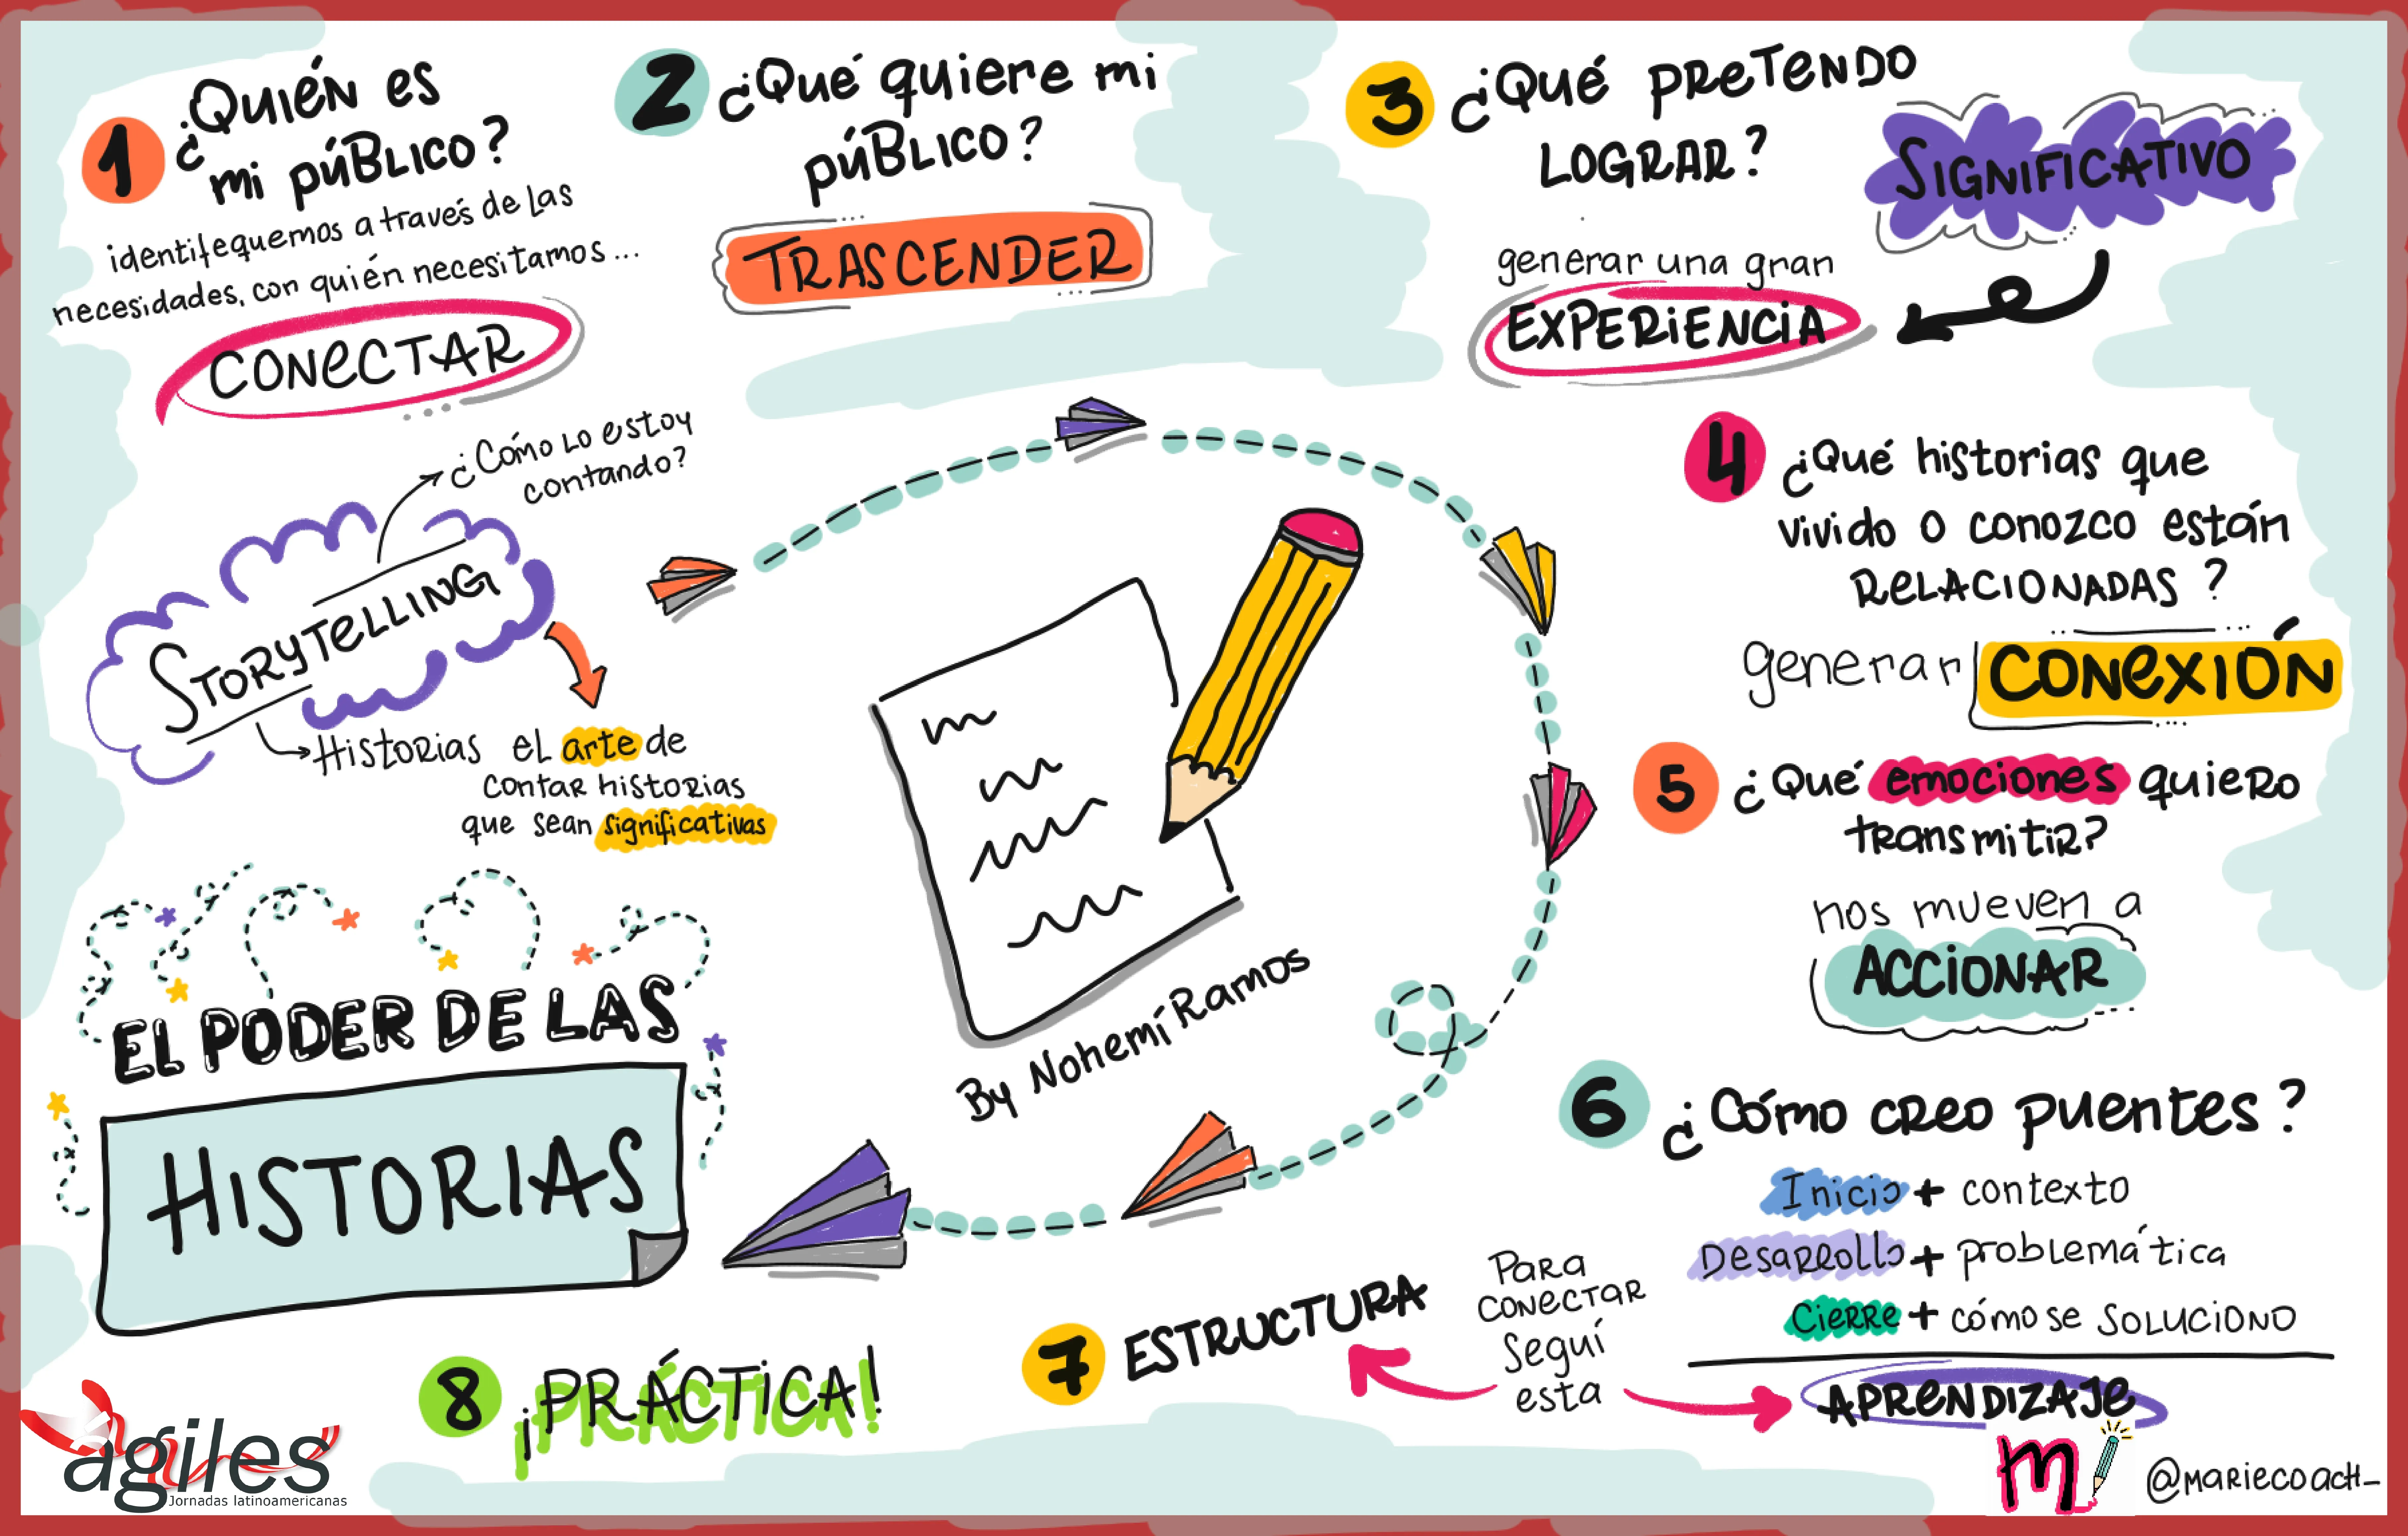 1 ¿Quién es
mi público?
identifequemos a través de las
necesidades, con quién necesitamos...
CONECTAR
2 ¿Qué quiere mi
público?
TRASCENDER
3 ¿Qué PRETENDO
LOGRAR?
SIGNIFICATIVO
generar una gran
EXPERIENCIA
4 ¿Qué historias que
vivido o conozco están
RELACIONADAS?
generar CONEXIÓN
5 ¿Qué emociones quiero
transmitir?
nos mueven a
ACCIONAR
6 ¿Cómo creo puentes?
Inicio + contexto
Desarrollo + problemática
Cierre + cómo se SOLUCIONO
APRENDIZAJE
Para
conectar
Seguí
esta
7 ESTRUCTURA
8 ¡PRÁCTICA!
¿Cómo lo estoy
contando?
STORYTELLING
Historias el arte de
contar historias
que sean significativas
EL PODER DE LAS
HISTORIAS
By Nohemí Ramos
agiles
Jornadas latinoamericanas
m
@mariecoach_